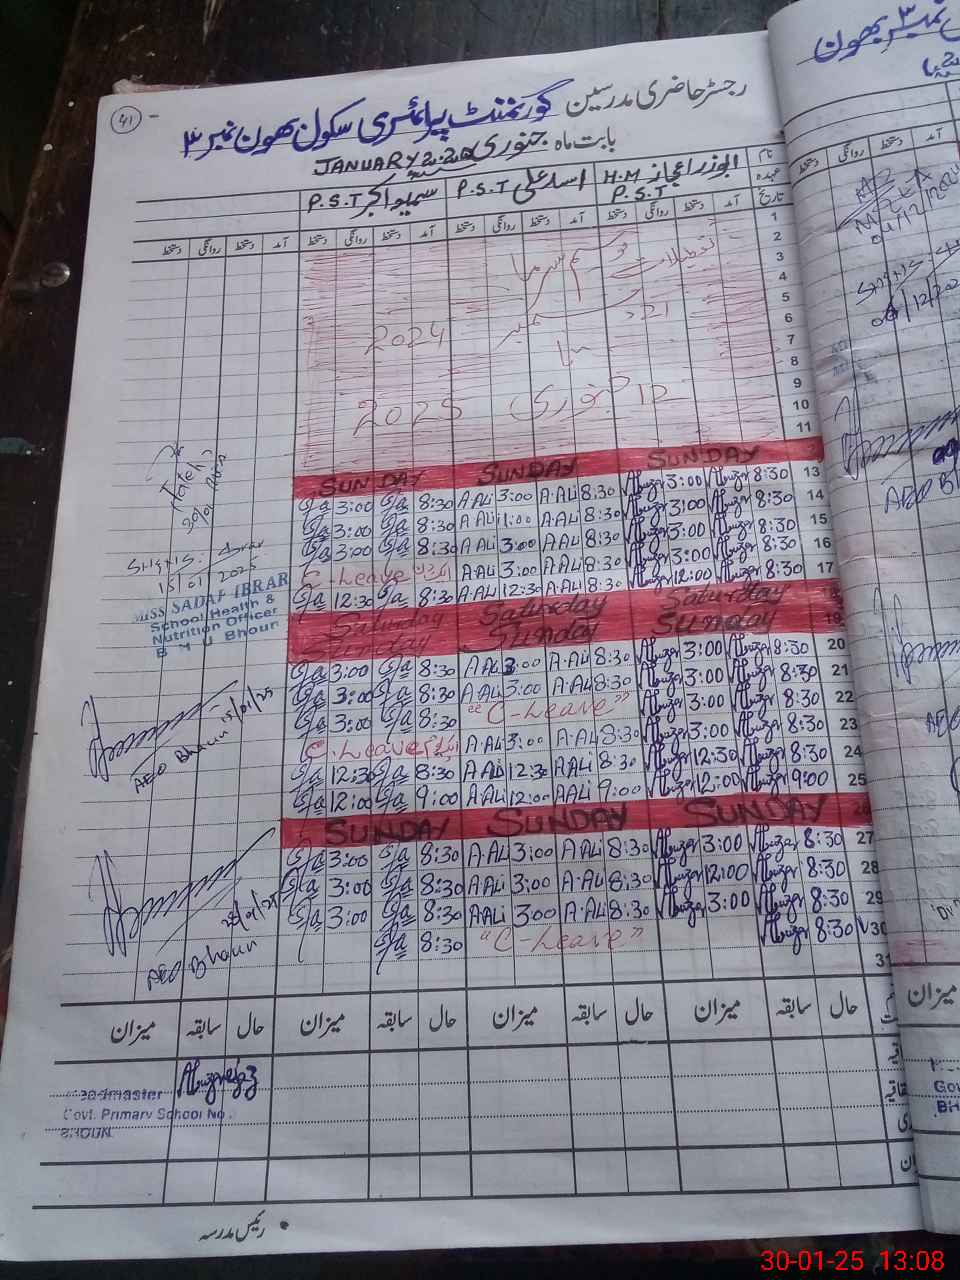 41
رجسٹر حاضری مدرسین گورنمنٹ پرائمری سکول بھون نمبر ۳
بابت ماہ جنوری JANUARY 2025
نام عہدہ ابوذر اعجاز H.M P.S.T اسد علی P.S.T P.S.T
تاریخ آمد دستخط روانگی دستخط آمد دستخط روانگی دستخط آمد دستخط روانگی دستخط آمد دستخط روانگی دستخط
1
2
3 تعطیلات موسم سرما
4
5
6 21 دسمبر 2024
7 تا
8
9
10 12 جنوری 2025
11
SUNDAY SUNDAY SUNDAY
13 8:30 Abuzar 3:00 Abuzar 8:30 A.Ali 3:00 A.Ali 8:30 S/a 3:00 S/a
14 8:30 Abuzar 3:00 Abuzar 8:30 A.Ali 1:00 A.Ali 8:30 S/a 3:00 S/a
15 8:30 Abuzar 3:00 Abuzar 8:30 A.Ali 3:00 A.Ali 8:30 S/a 3:00 S/a
16 8:30 Abuzar 3:00 Abuzar 8:30 A.Ali 3:00 A.Ali C-Leave
17 8:30 Abuzar 12:00 Abuzar 8:30 A.Ali 12:30 A.Ali 8:30 S/a 12:30 S/a
18 Saturday Saturday Saturday
19 Sunday Sunday Sunday
20 8:30 Abuzar 3:00 Abuzar 8:30 A.Ali 3:00 A.Ali 8:30 S/a 3:00 S/a
21 8:30 Abuzar 3:00 Abuzar 8:30 A.Ali 3:00 A.Ali 8:30 S/a 3:00 S/a
22 8:30 Abuzar 3:00 Abuzar "C-Leave" 8:30 S/a 3:00 S/a
23 8:30 Abuzar 3:00 Abuzar 8:30 A.Ali 3:00 A.Ali C.Leave
24 8:30 Abuzar 12:30 Abuzar 8:30 A.Ali 12:30 A.Ali 8:30 S/a 12:30 S/a
25 9:00 Abuzar 12:00 Abuzar 9:00 A.Ali 12:00 A.Ali 9:00 S/a 12:00 S/a
26 SUNDAY SUNDAY SUNDAY
27 8:30 Abuzar 3:00 Abuzar 8:30 A.Ali 3:00 A.Ali 8:30 S/a 3:00 S/a
28 8:30 Abuzar 12:00 Abuzar 8:30 A.Ali 3:00 A.Ali 8:30 S/a 3:00 S/a
29 8:30 Abuzar 3:00 Abuzar 8:30 A.Ali 3:00 A.Ali 8:30 S/a 3:00 S/a
30 8:30 Abuzar "C-Leave" 8:30 S/a
31
15/01/2025
MISS SADAF IBRAR
School Health &
Nutrition Officer
B H U Bhoun
15/01/25
AEO Bhoun
28/01/25
AEO Bhoun
حال سابقہ میزان حال سابقہ میزان حال سابقہ میزان حال سابقہ میزان
Headmaster
Govt. Primary School No.
BHOUN
رئیس مدرسہ
نمبر ۳ بھون
آمد دستخط روانگی دستخط
04/12/2024
AEO Bh
میزان
Gov
BH
30-01-25 13:08